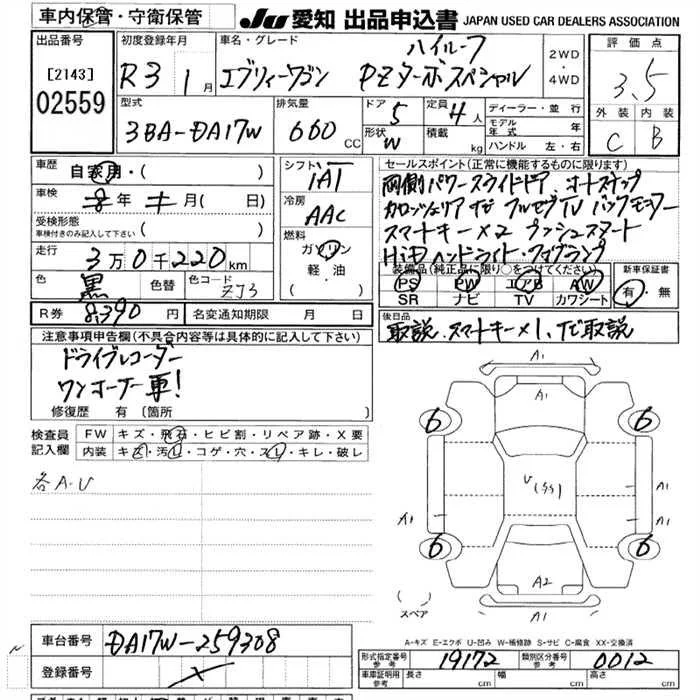 車内保管・守衛保管
JU 愛知 出品申込書 JAPAN USED CAR DEALERS ASSOCIATION
出品番号
[2143]
02559
初度登録年月
R3 1月
車名・グレード
ハイルーフ
エブリィワゴン PZターボスペシャル
2WD・4WD
評価点
3.5
外装 内装
C B
型式
3BA-DA17W
排気量
660 CC
ドア 5
形状 W
定員 4人
積載 kg
ディーラー・並行
モデル年式 年
ハンドル 左・右
車歴 自家用・( )
車検 8年 1月( 日)
受検形態
車検付きのみ記入して下さい ( )
走行 3万0千220km
色 黒 色替 色コード ZJ3
R券 8,390円 名変通知期限 月 日
シフト
IAT
冷房
AAC
燃料
ガソリン
軽・油
( )
セールスポイント(正常に機能するものに限ります)
両側パワースライドドア、オートステップ
カロッツェリアナビ フルセグTV バックモニター
スマートキー×2 プッシュスタート
HiDヘッドライト・フォグランプ
装備品(純正品に限り○をつけてください)
PS PW エアB AW
SR ナビ TV カワシート
新車保証書
有・無
後日品
取説、スマートキー×1、ナビ取説
注意事項申告欄(不具合内容等は具体的に記入して下さい)
ドライブレコーダー
ワンオーナー車!
修復歴 有〔箇所 〕
検査員記入欄
FW キズ・飛石・ヒビ割・リペア跡・X要
内装 キズ・汚れ・コゲ・穴・スレ・キレ・破レ
各A・U
A1
A1
6 6
U(SS)
A1 A1
A1
6 6
A2
A1
( )
スペア
A-キズ E-エクボ U-凹み W-補修跡 S-サビ C-腐食 XX-交換済
車台番号 DA17W-259308
登録番号
型式指定番号 参考 19172
類別区分番号 参考 0012
車庫証明用 参考 長さ cm 幅 cm 高さ cm